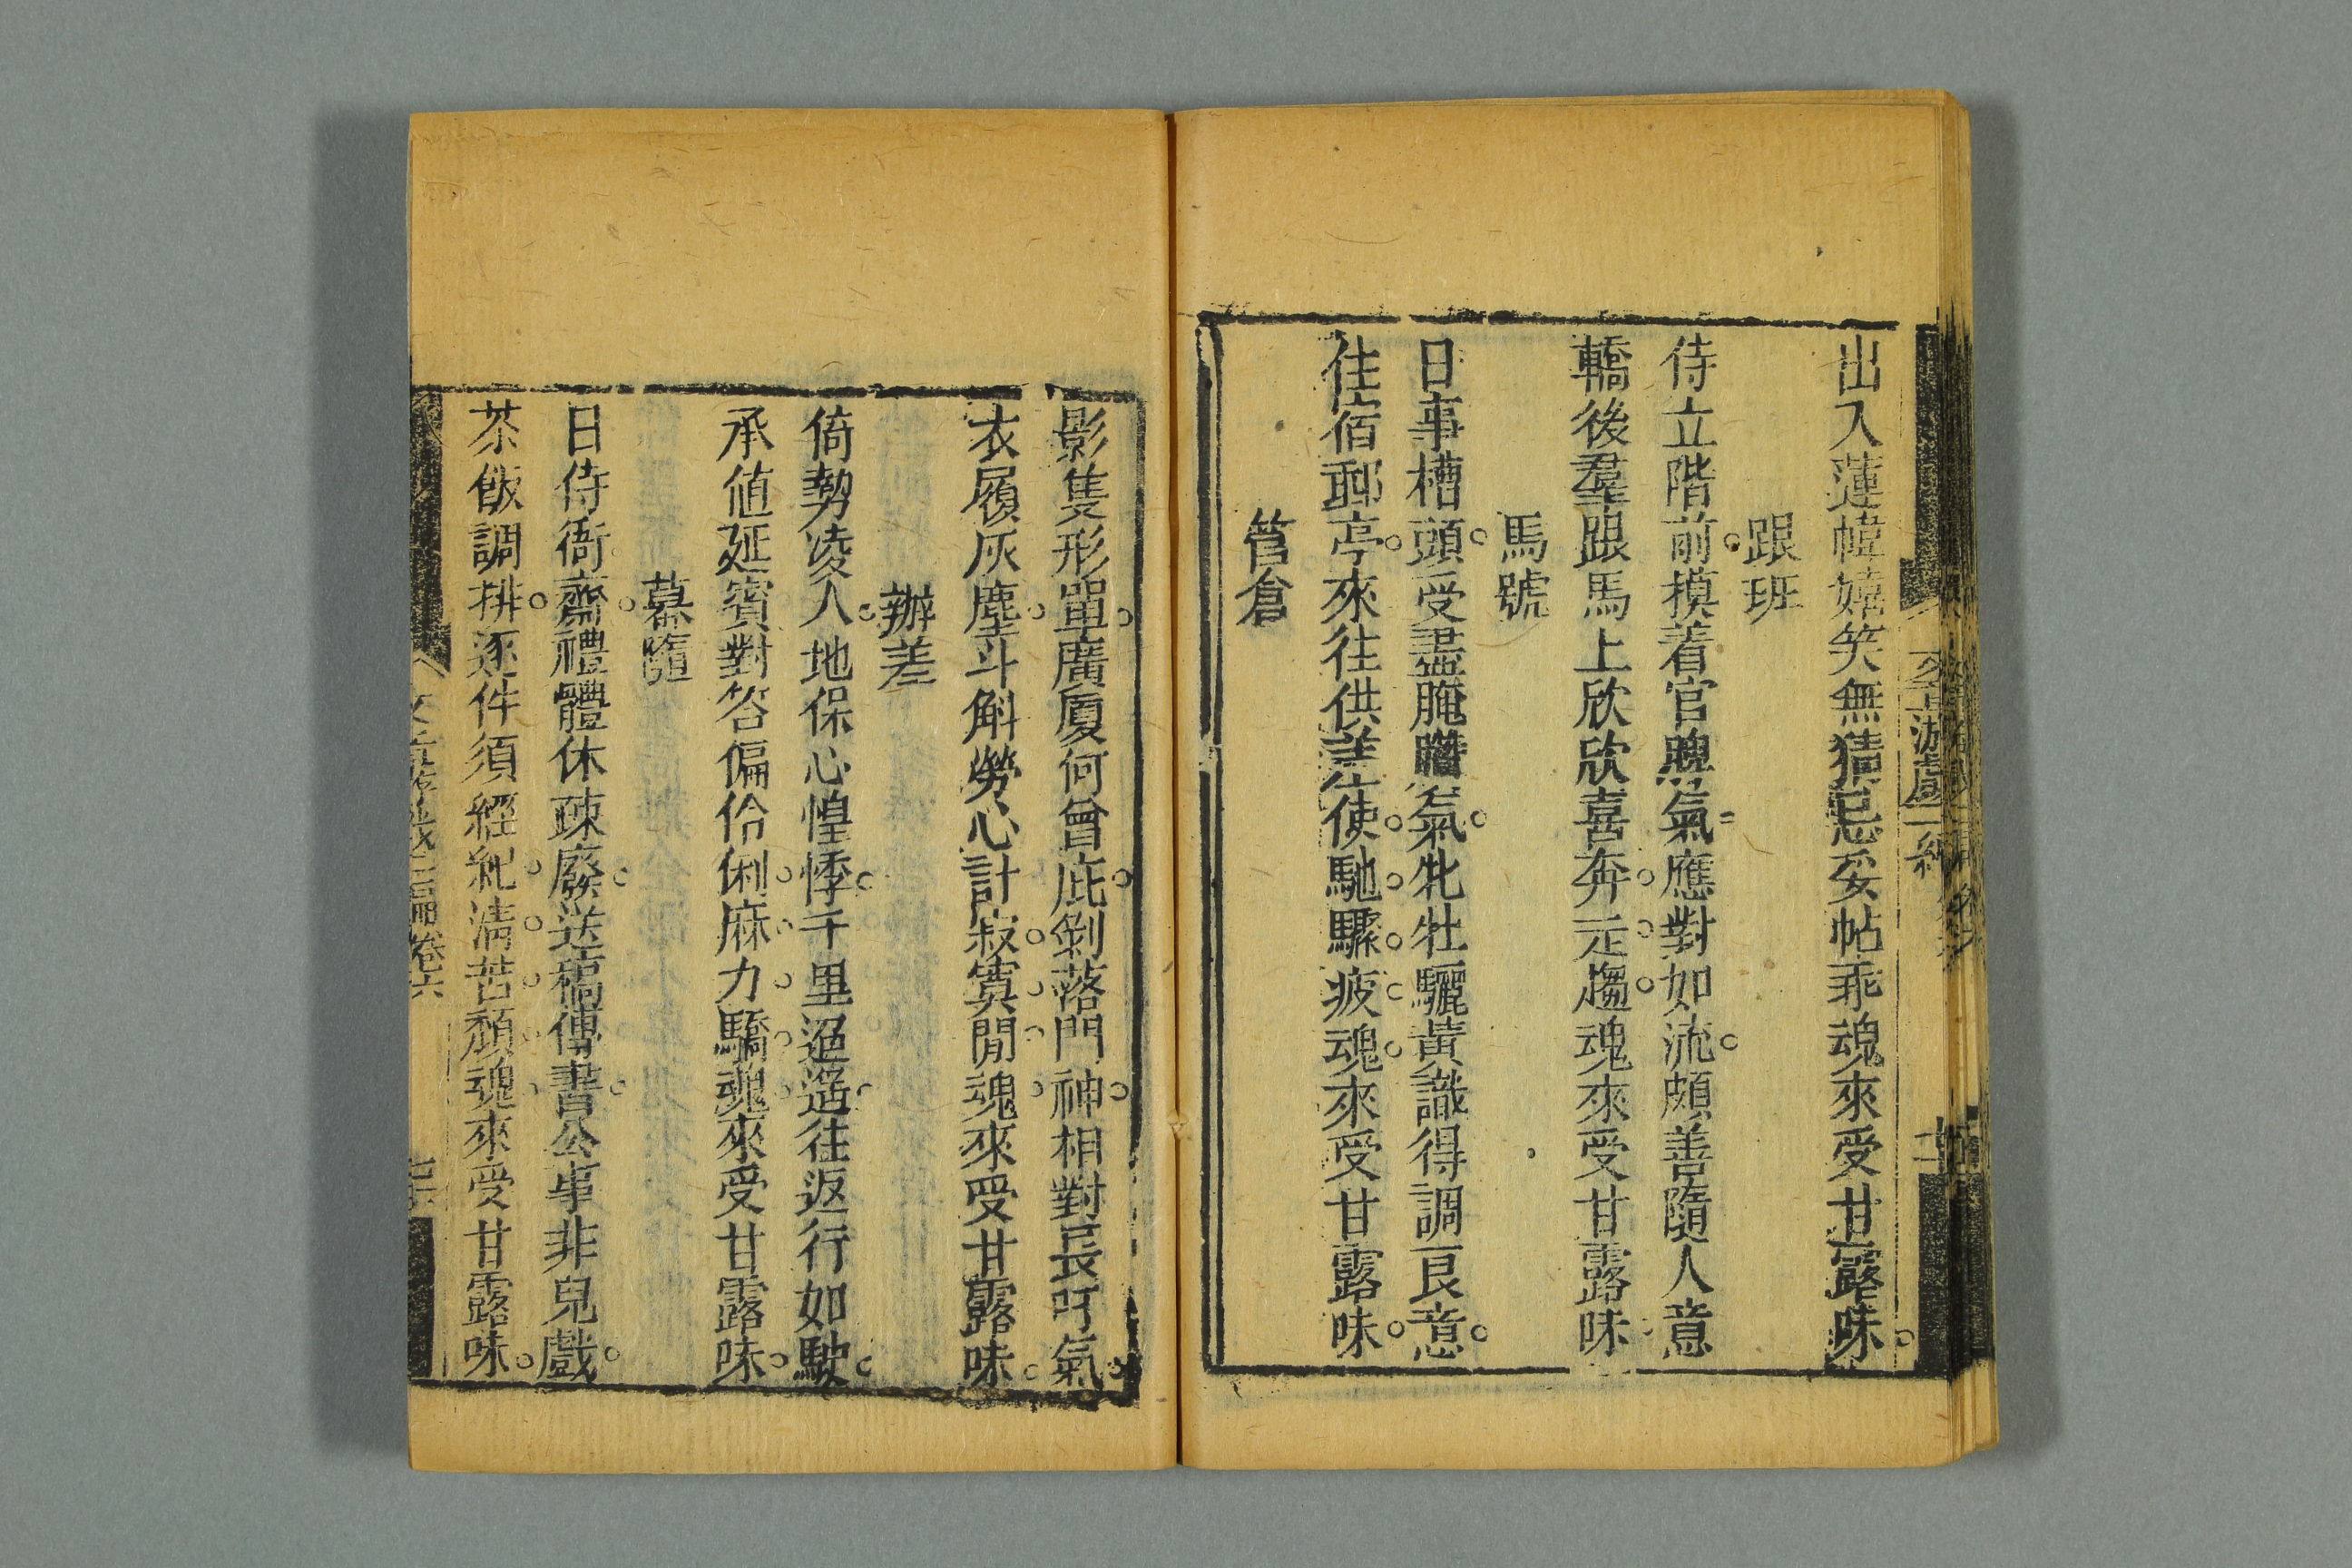 出入蓮幃嬉笑無猜忌妥帖乖魂來受甘露味
跟班
侍立階前摸着官腔氣應對如流頗善隨人意
轎後羣跟馬上欣欣喜奔走趨魂來受甘露味
馬號
日事槽頭受盡腌臢氣牝牡驪黃識得調良意
往宿郵亭來往供差使馳驟疲魂來受甘露味
管倉
影隻形單廣厦何曾庇剝落門神相對長吁氣
衣履灰塵斗斛勞心計寂寞閒魂來受甘露味
辦差
倚勢凌人地保心惶悸千里迢遙往返行如駛
承値延賓對答偏伶俐麻力驕魂來受甘露味
幕隨
日侍衙齋禮體休疎廢送稿傳書公事非兒戲
茶飯調排逐件須經紀淸苦頹魂來受甘露味
文章遊戲二編 卷六